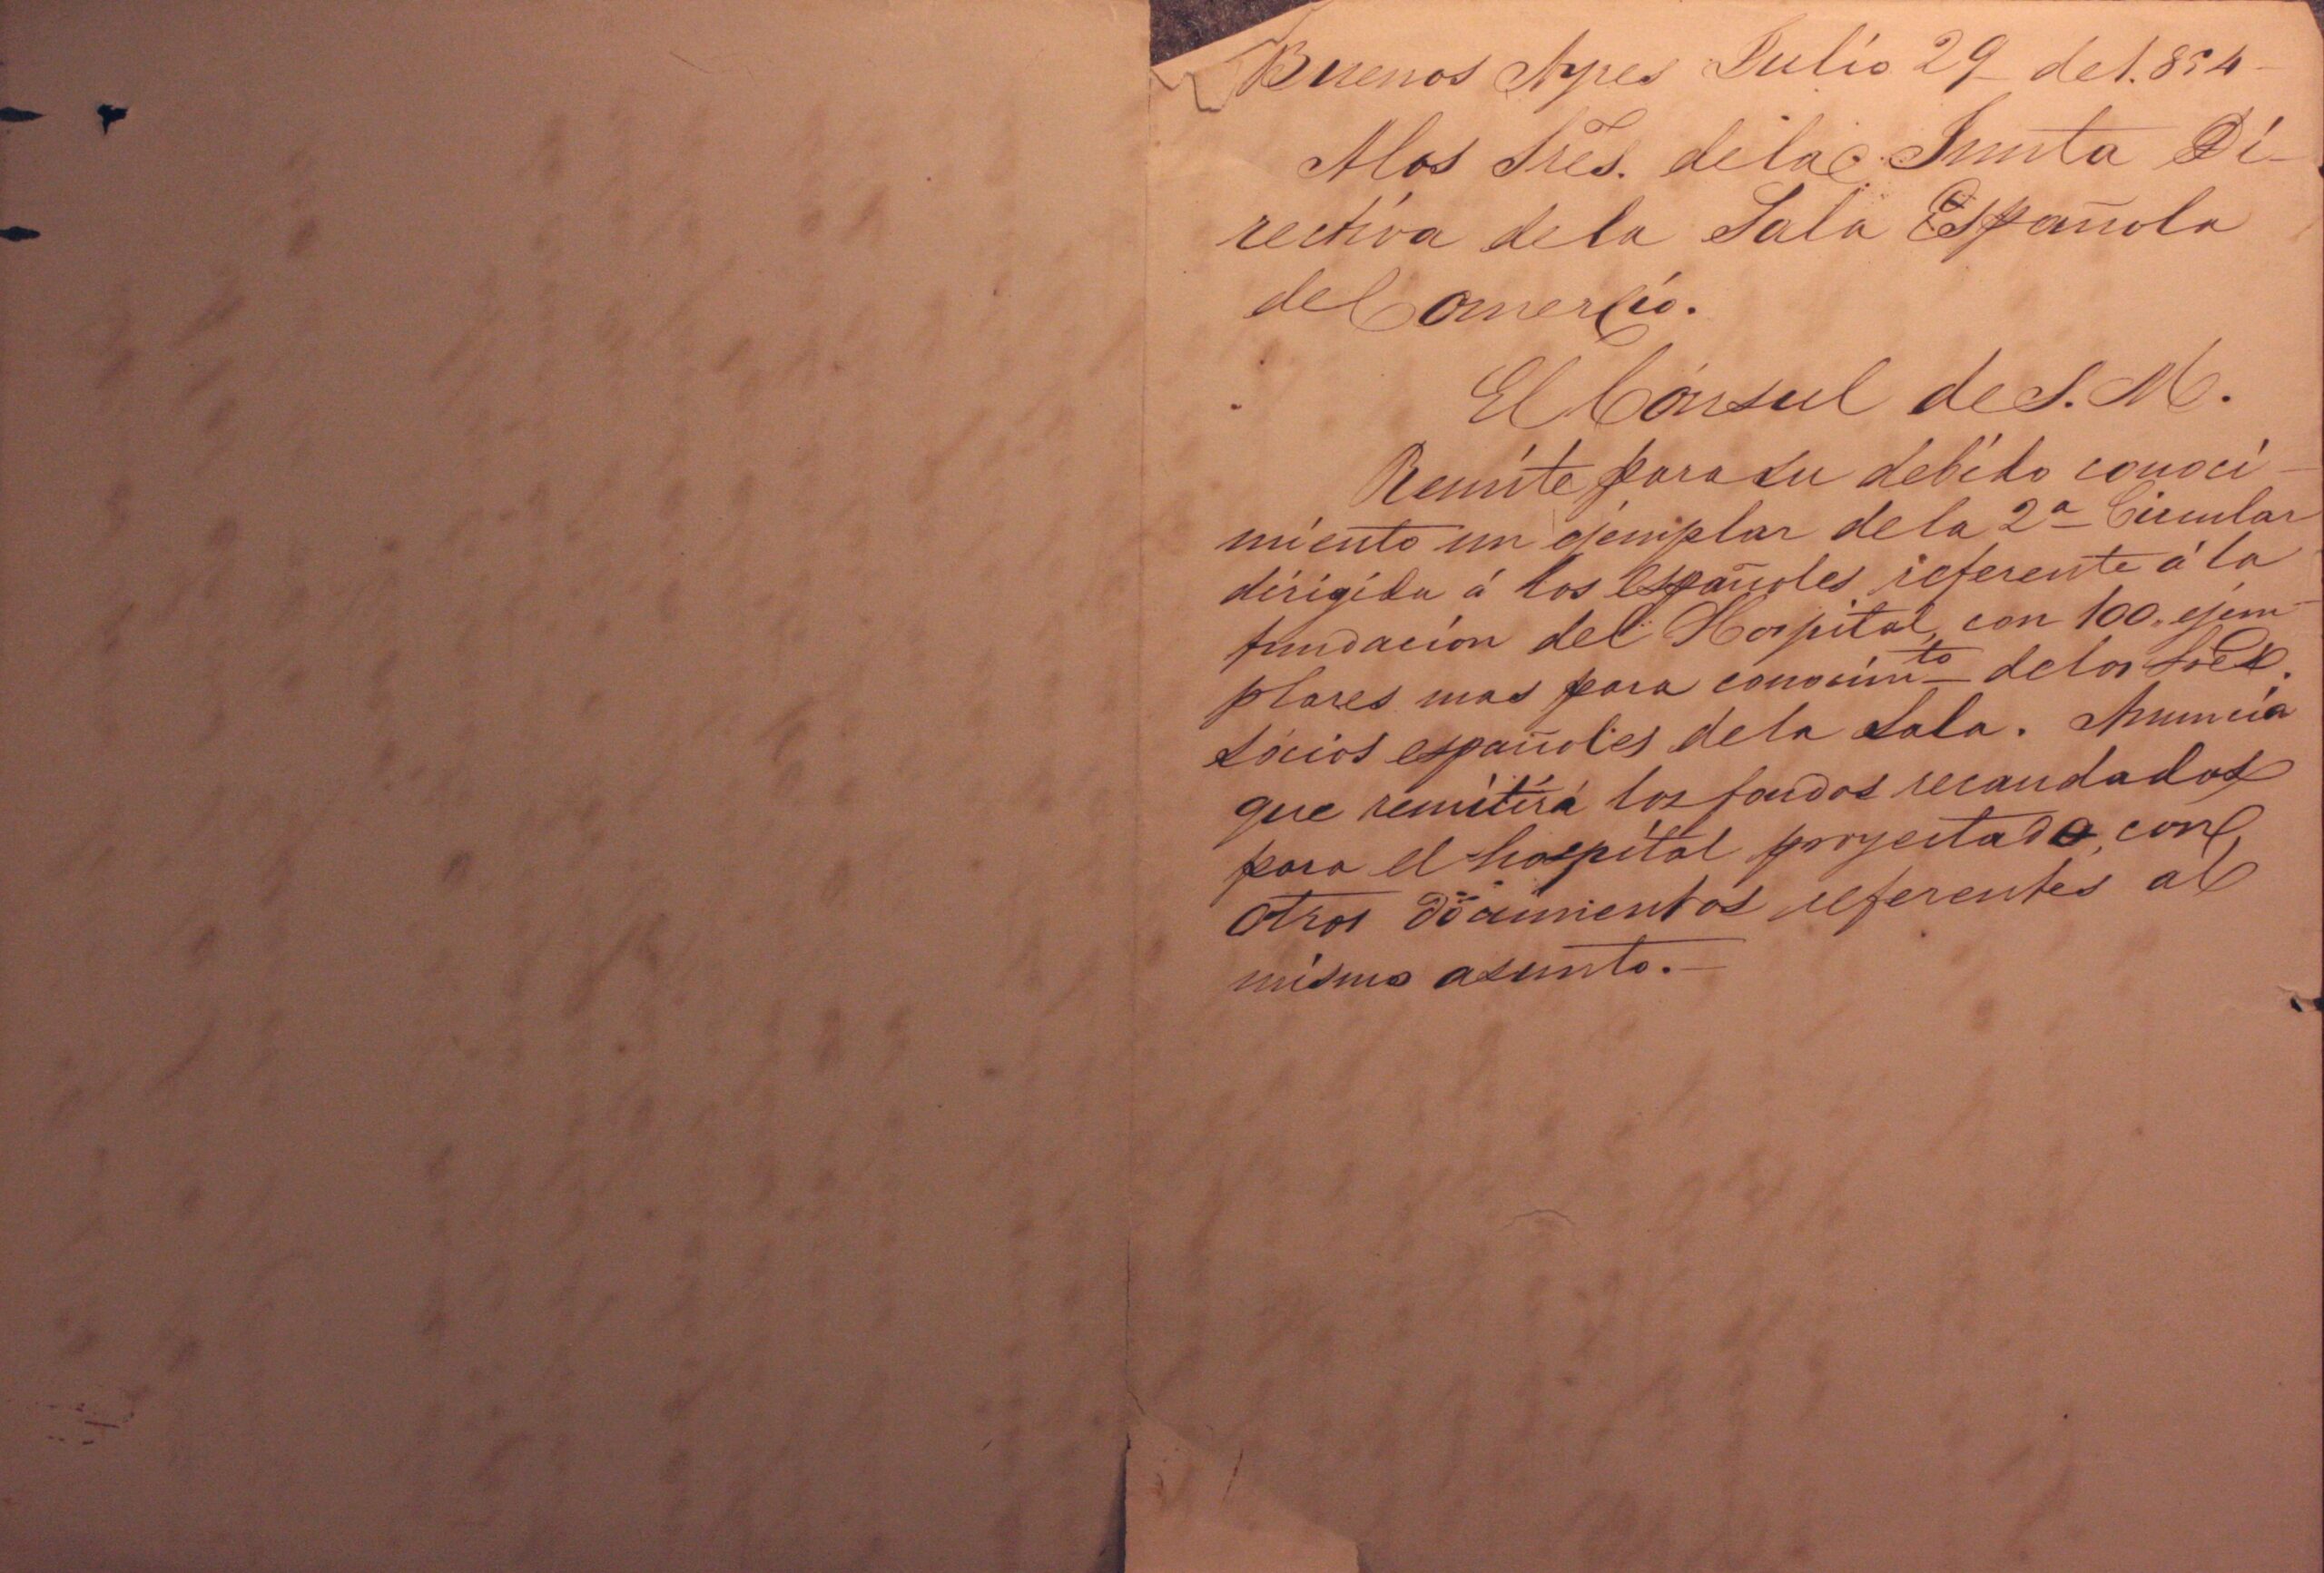 Buenos Ayres Julio 29 de 1.854-
A los Sres. de la Junta Di-
rectiva de la Sala Española
de Comercio.
El Cónsul de S. M.
Remite para su debido conoci-
miento un ejemplar de la 2ª Circular
dirigida á los españoles referente á la
fundacion del Hospital, con 100. ejem-
plares mas para conocimto de los Sres.
sócios españoles de la Sala. Anuncia
que remitirá los fondos recaudados
para el hospital proyectado, con
otros documentos referentes al
mismo asunto.-